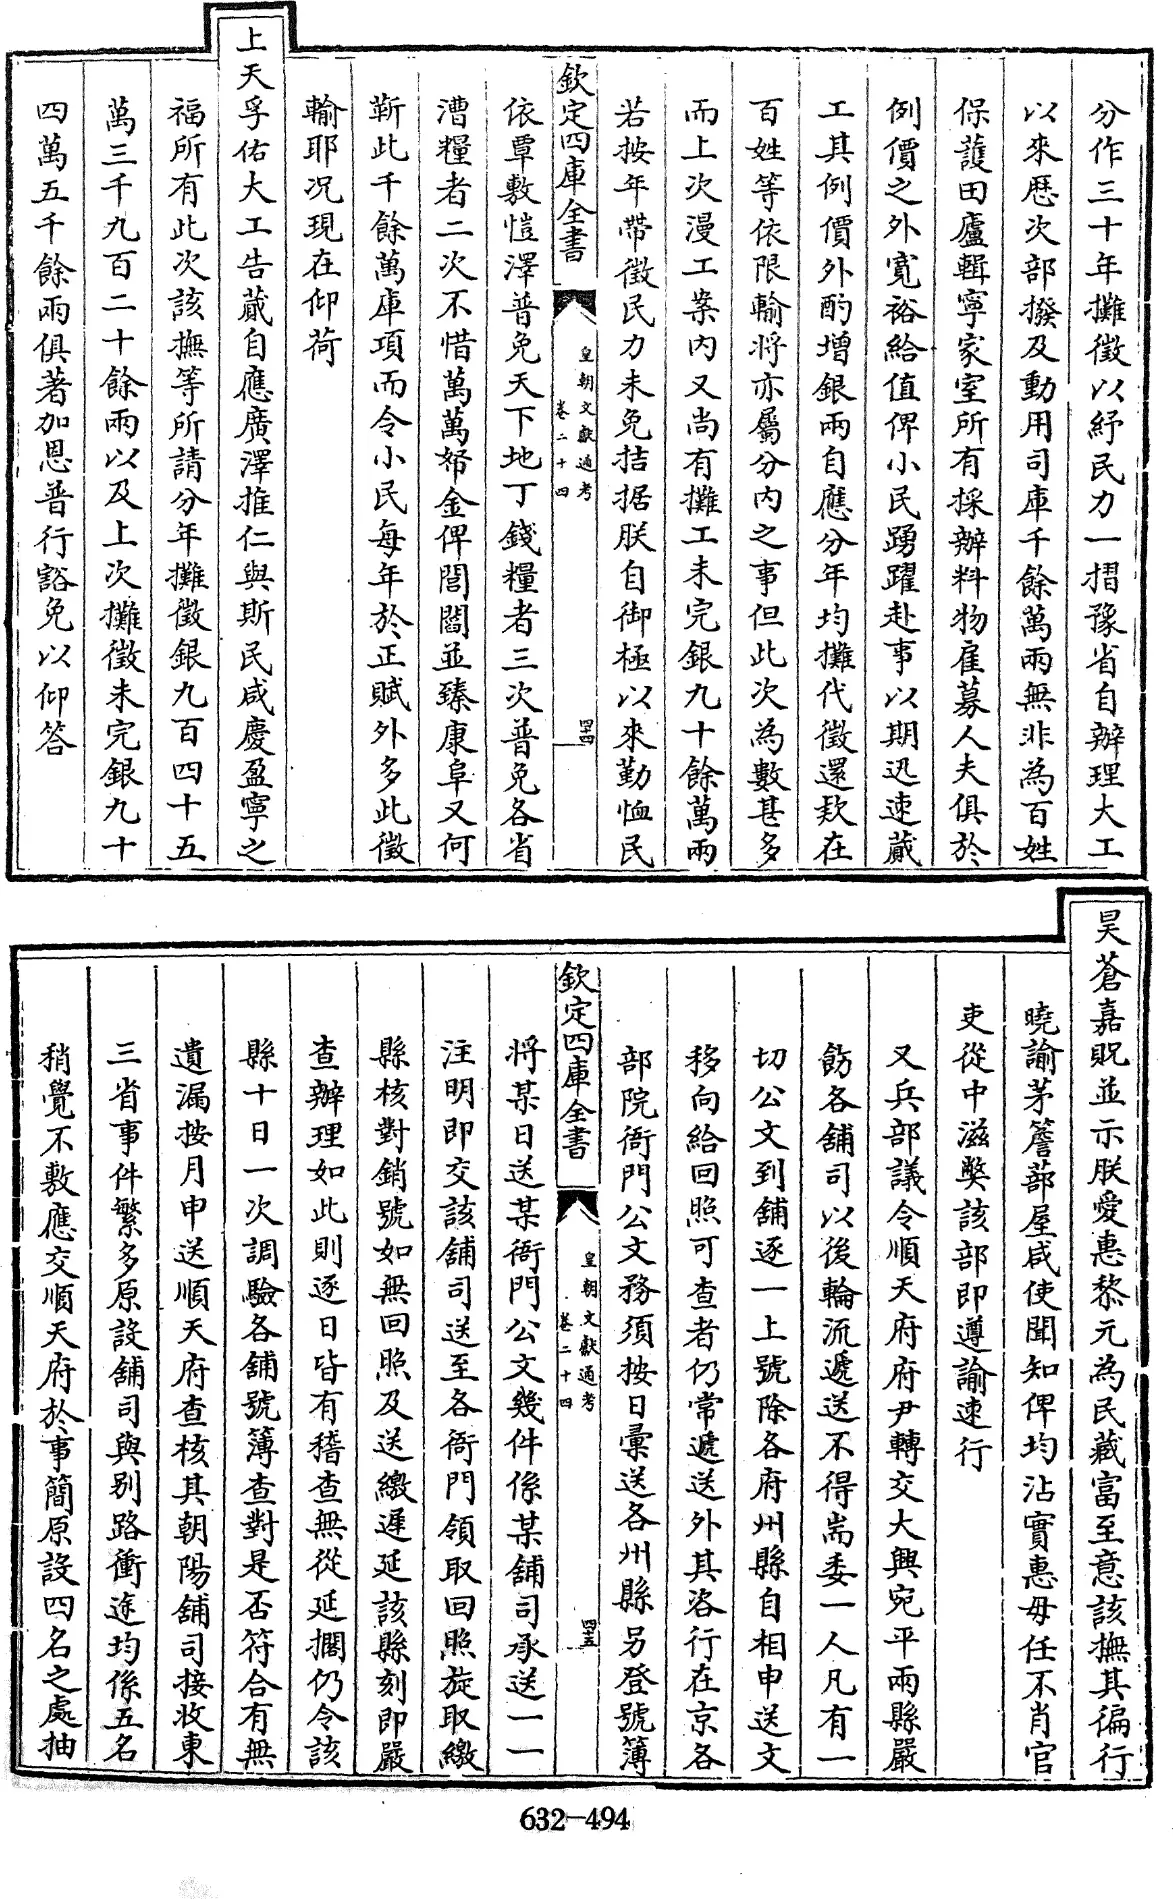 分作三十年攤徵以紓民力一摺豫省自辦理大工
以來歷次部撥及動用司庫千餘萬兩無非為百姓
保護田廬輯寧家室所有採辦料物雇募人夫俱於
例價之外寛裕給值俾小民踴躍赴事以期迅速蕆
工其例價外酌增銀兩自應分年均攤代徵還欵在
百姓等依限輸將亦屬分內之事但此次為數甚多
而上次漫工案內又尚有攤工未完銀九十餘萬兩
若按年帶徵民力未免拮据朕自御極以來勤恤民
欽定四庫全書
皇朝文獻通考
卷二十四
四十四
依覃敷愷澤普免天下地丁錢糧者三次普免各省
漕糧者二次不惜萬萬帑金俾閭閻並臻康阜又何
靳此千餘萬庫項而令小民每年於正賦外多此徵
輸耶况現在仰荷
上天孚佑大工告蕆自應廣澤推仁與斯民咸慶盈寧之
福所有此次該撫等所請分年攤徵銀九百四十五
萬三千九百二十餘兩以及上次攤徵未完銀九十
四萬五千餘兩俱著加恩普行豁免以仰答
昊蒼嘉貺並示朕愛惠黎元為民藏富至意該撫其徧行
曉諭茅簷蔀屋咸使聞知俾均沾實惠毋任不肖官
吏從中滋弊該部即遵諭速行
又兵部議令順天府府尹轉交大興宛平兩縣嚴
飭各舖司以後輪流遞送不得耑委一人凡有一
切公文到舖逐一上號除各府州縣自相申送文
移向給回照可查者仍常遞送外其洛行在京各
部院衙門公文務須按日彚送各州縣另登號簿
欽定四庫全書
皇朝文獻通考
卷二十四
四十五
將某日送某衙門公文幾件係某舖司承送一一
注明即交該舖司送至各衙門領取回照旋取繳
縣核對銷號如無回照及送繳遲延該縣刻即嚴
查辦理如此則逐日皆有稽查無從延擱仍令該
縣十日一次調驗各舖號簿查對是否符合有無
遺漏按月申送順天府查核其朝陽舖司接收東
三省事件繁多原設舖司與别路衝途均係五名
稍覺不敷應交順天府於事簡原設四名之處抽
632-494